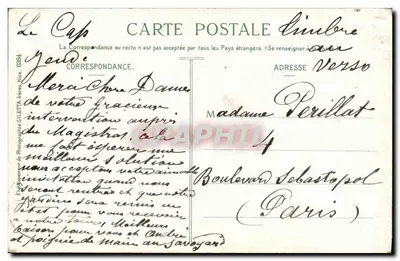 Le Cap
CARTE POSTALE
timbre
au
verso
La Correspondance au recto n'est pas acceptée par tous les Pays étrangers. (Se renseigner
Jeudi
CORRESPONDANCE
ADRESSE
Merci Chere Dames
de votre Gracieuse
intervention auprès
du Magistros, cela
me fait espérer une
meilleure solution
nous acceptons votre aimable
invitation quand nous
serons rentrés et que notre
sera remis en
état pour vous recevoir
a notre Meilleurs
baisers pour vous et Andre
et poignée de main au Savoyard
Madame Périllat
4
Boulevard Sébastopol
(Paris)
GILETTA frères, Nice